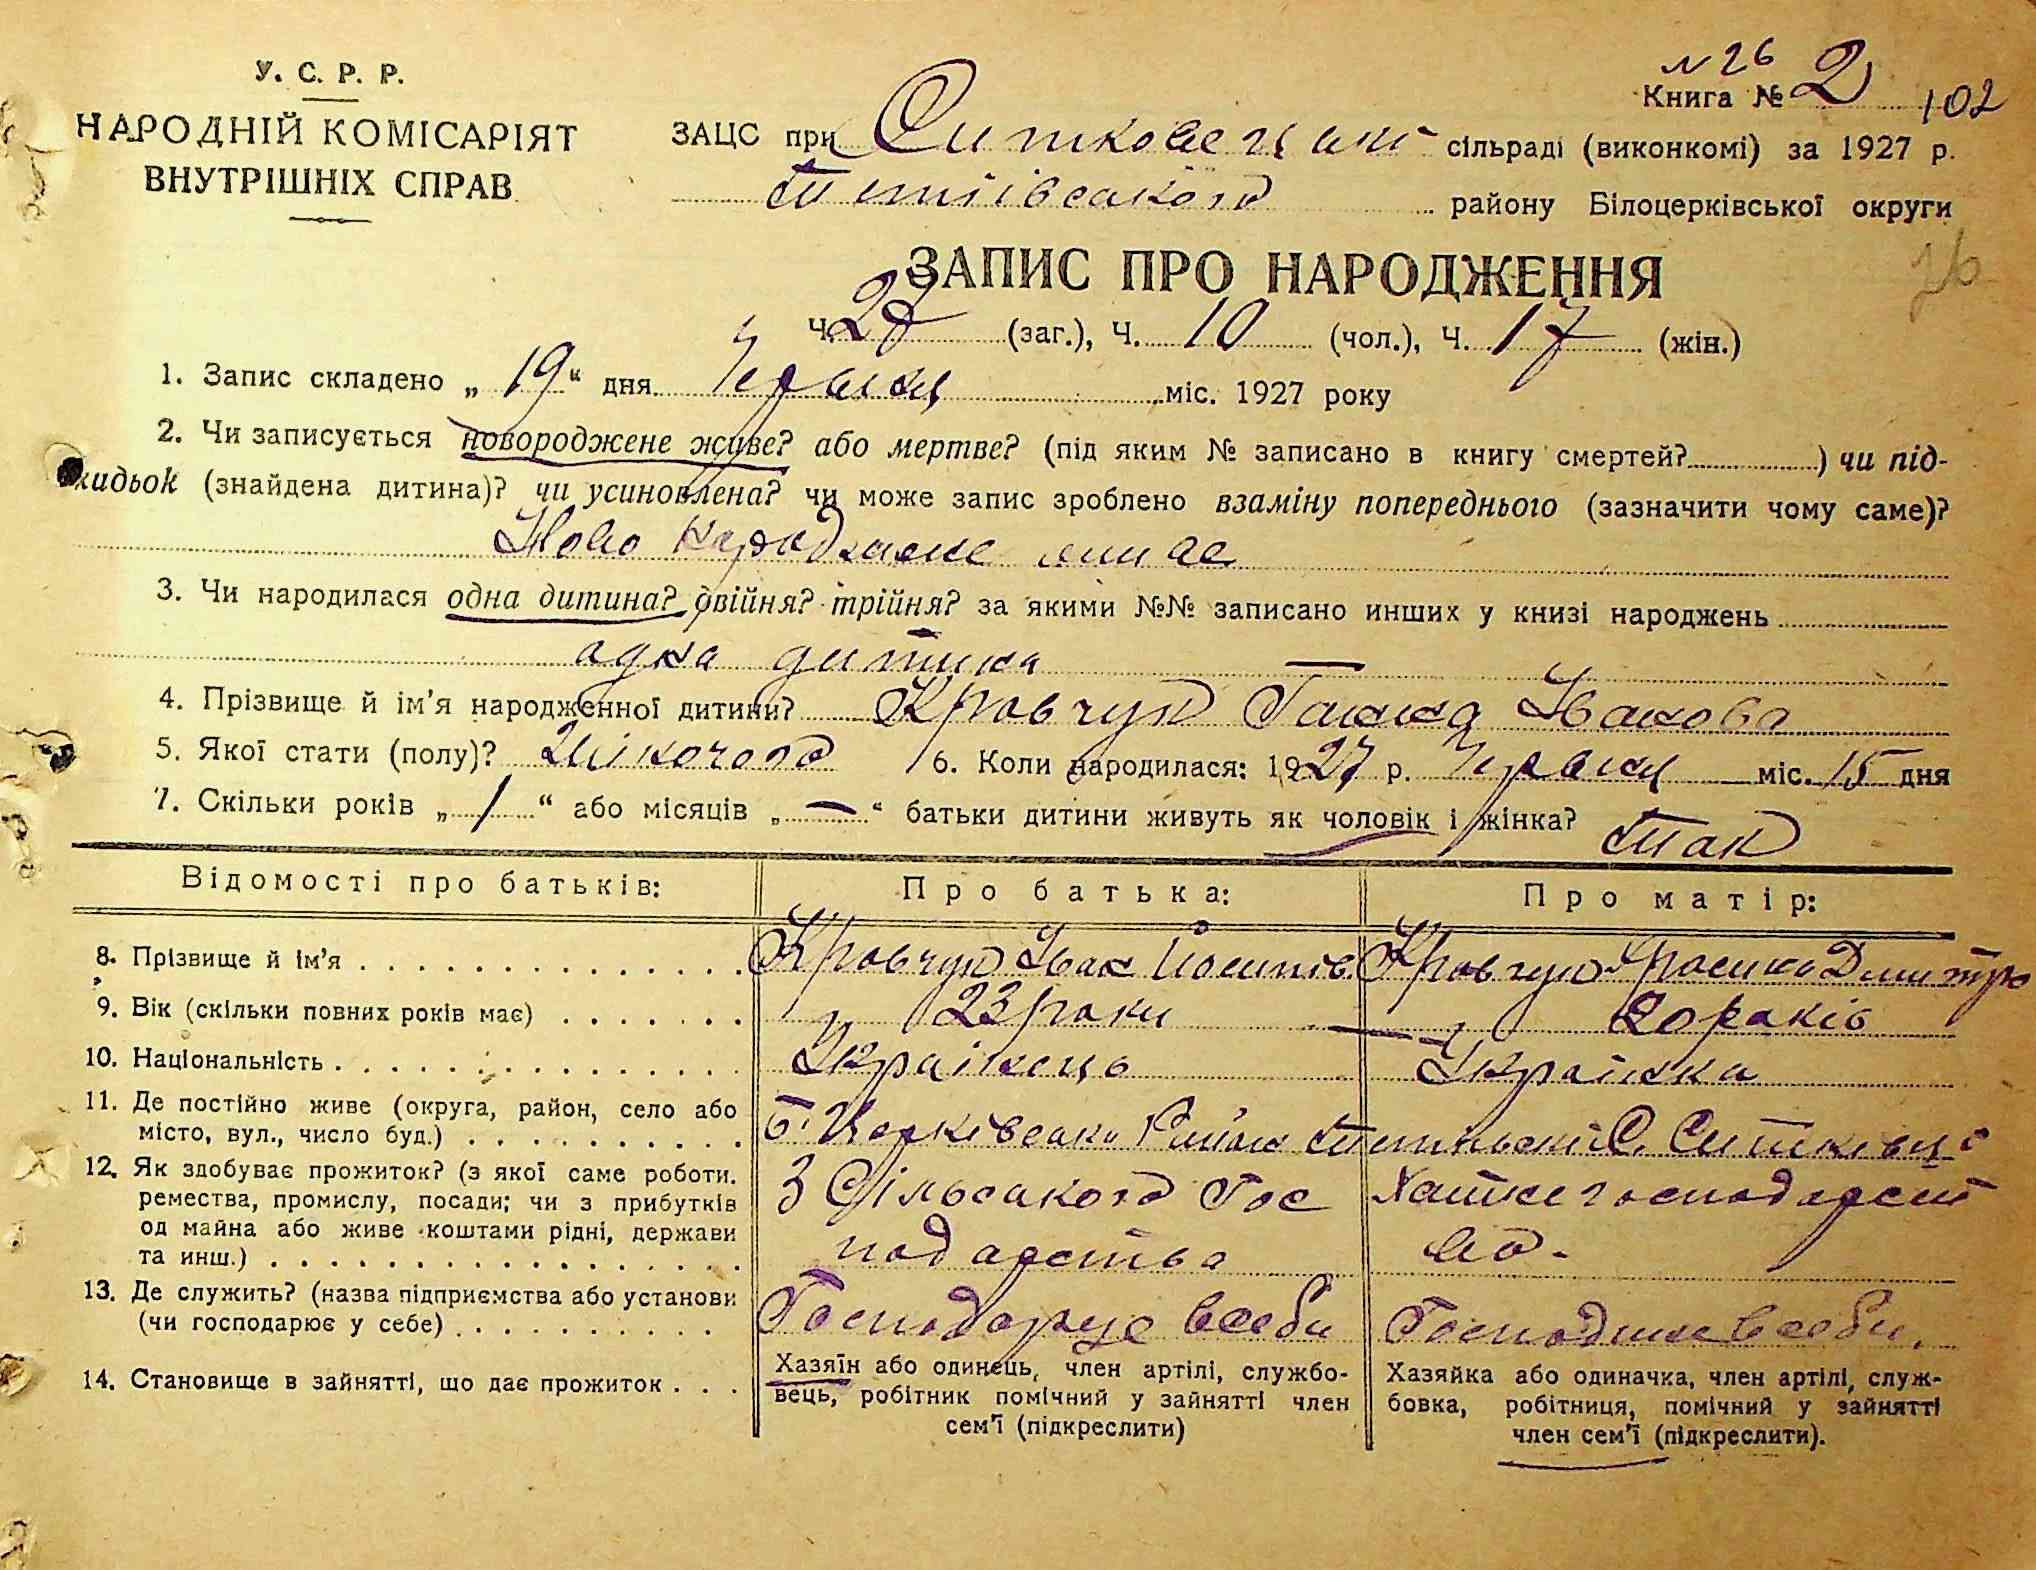 У. С. Р. Р.
НАРОДНІЙ КОМІСАРІЯТ
ВНУТРІШНІХ СПРАВ
№ 26
Книга № 2 102
ЗАЦС при Ситковецькі сільраді (виконкомі) за 1927 р.
Тетіївського району Білоцерківської округи
ЗАПИС ПРО НАРОДЖЕННЯ
Ч. 27 (заг.), Ч. 10 (чол.), Ч. 17 (жін.)
1. Запис складено „ 19 “ дня Червня міс. 1927 року
2. Чи записується новороджене живе? або мертве? (під яким № записано в книгу смертей?) чи під-
кидьок (знайдена дитина)? чи усиновлена? чи може запис зроблено взаміну попереднього (зазначити чому саме)?
Ново народжене
3. Чи народилася одна дитина? двійня? трійня? за якими №№ записано инших у книзі народжень
одна дитина —
4. Прізвище й ім'я народженної дитини? Кравчук Ганна Іванова
5. Якої стати (полу)? Жіночого 6. Коли народилася: 1927 р. Червня міс. 15 дня
7. Скільки років „ 1 “ або місяців „ — “ батьки дитини живуть як чоловік і жінка? Так
Відомості про батьків: Про батька: Про матір:
8. Прізвище й ім'я Кравчук Іван Йосипів Кравчук Фросина Дмитр
9. Вік (скільки повних років має) 23 роки 20 років
10. Національність Українець Українка
11. Де постійно живе (округа, район, село або
місто, вул., число буд.) Б. Церківська Район С. Ситківці
12. Як здобуває прожиток? (з якої саме роботи.
ремества, промислу, посади; чи з прибутків
од майна або живе коштами рідні, держави
та инш.)
З Сільського Гос
подарства
Хатнє господарст
во.
13. Де служить? (назва підприємства або установи
(чи господарює у себе)
Господарює в себи
Господине в себи.
14. Становище в зайнятті, що дає прожиток
Хазяїн або одинець, член артілі, службо-
вець, робітник помічний у зайнятті член
сем'ї (підкреслити)
Хазяйка або одиначка, член артілі, служ-
бовка, робітниця, помічний у зайнятті
член сем'ї (підкреслити).